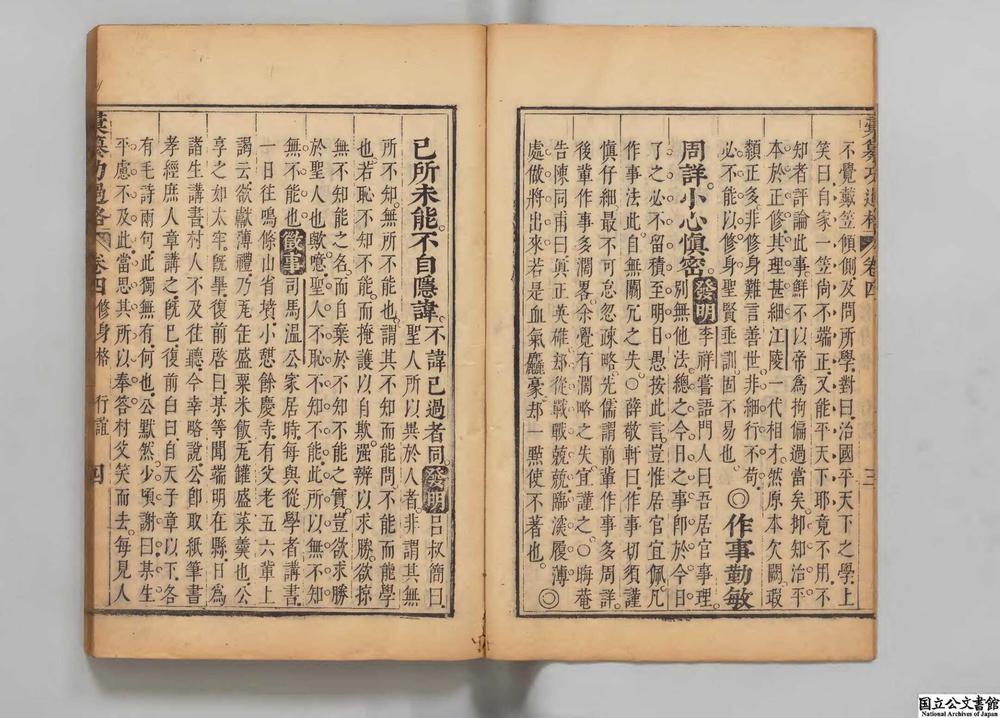 彙纂功過格 卷四 三
不覺戴笠傾側及問所學對曰治國平天下之學上
笑曰自家一笠尙不端正又能平天下耶竟不用不
知者評論此事鮮不以帝爲拘偏過當矣栁知治平
本於正修其理甚細江陵一代相才然原本欠闕瑕
纇正多非修身難言善世非細行不苟
必不能以修身聖賢垂訓固不易也◎作事勤敏
周詳小心愼密發明李祥嘗語門人曰吾居官事理
別無他法總之今日之事卽於今日
了之必不留積至明日愚按此言豈惟居官宜佩凡
作事法此自無闕冗之失○薛敬軒曰作事切須謹
愼仔細最不可怠忽疎略先儒謂前輩作事多周詳
後輩作事多濶畧余覺有濶略之失宜謹之○晦菴
告陳同甫曰眞正英雄却從戰戰兢兢臨深履薄
處做將出來若是血氣麤豪却一點使不著也◎
己所未能不自隱諱不諱己過者同發明呂叔簡曰
聖人所以異於人者非謂其無
所不知無所不能也謂其不知而能問不能而能學
也若恥不知不能而掩護以自欺强辯以求勝欲掠
無不知能之名而自棄於不知不能之實豈欲求勝
於聖人也歟噫聖人不恥不知不能此所以無不知
無不能也徵事司馬溫公家居時每與從學者講書
一日往鳴條山省墳小憇餘慶寺有父老五六輩上
謁云欲獻薄禮乃瓦缶盛粟米飯瓦罐盛菜羹也公
享之如太牢旣畢復前啓曰某等聞端明在縣日爲
諸生講書村人不及往聽今幸略說公卽取紙筆書
孝經庶人章講之旣已復前白曰自天子章以下各
有毛詩兩句此獨無有何也公默然少頃謝曰某生
平慮不及此當思其所以奉答村父笑而去每見人
彙纂功過格 卷四 修身格 行誼 四
国立公文書館
National Archives of Japan